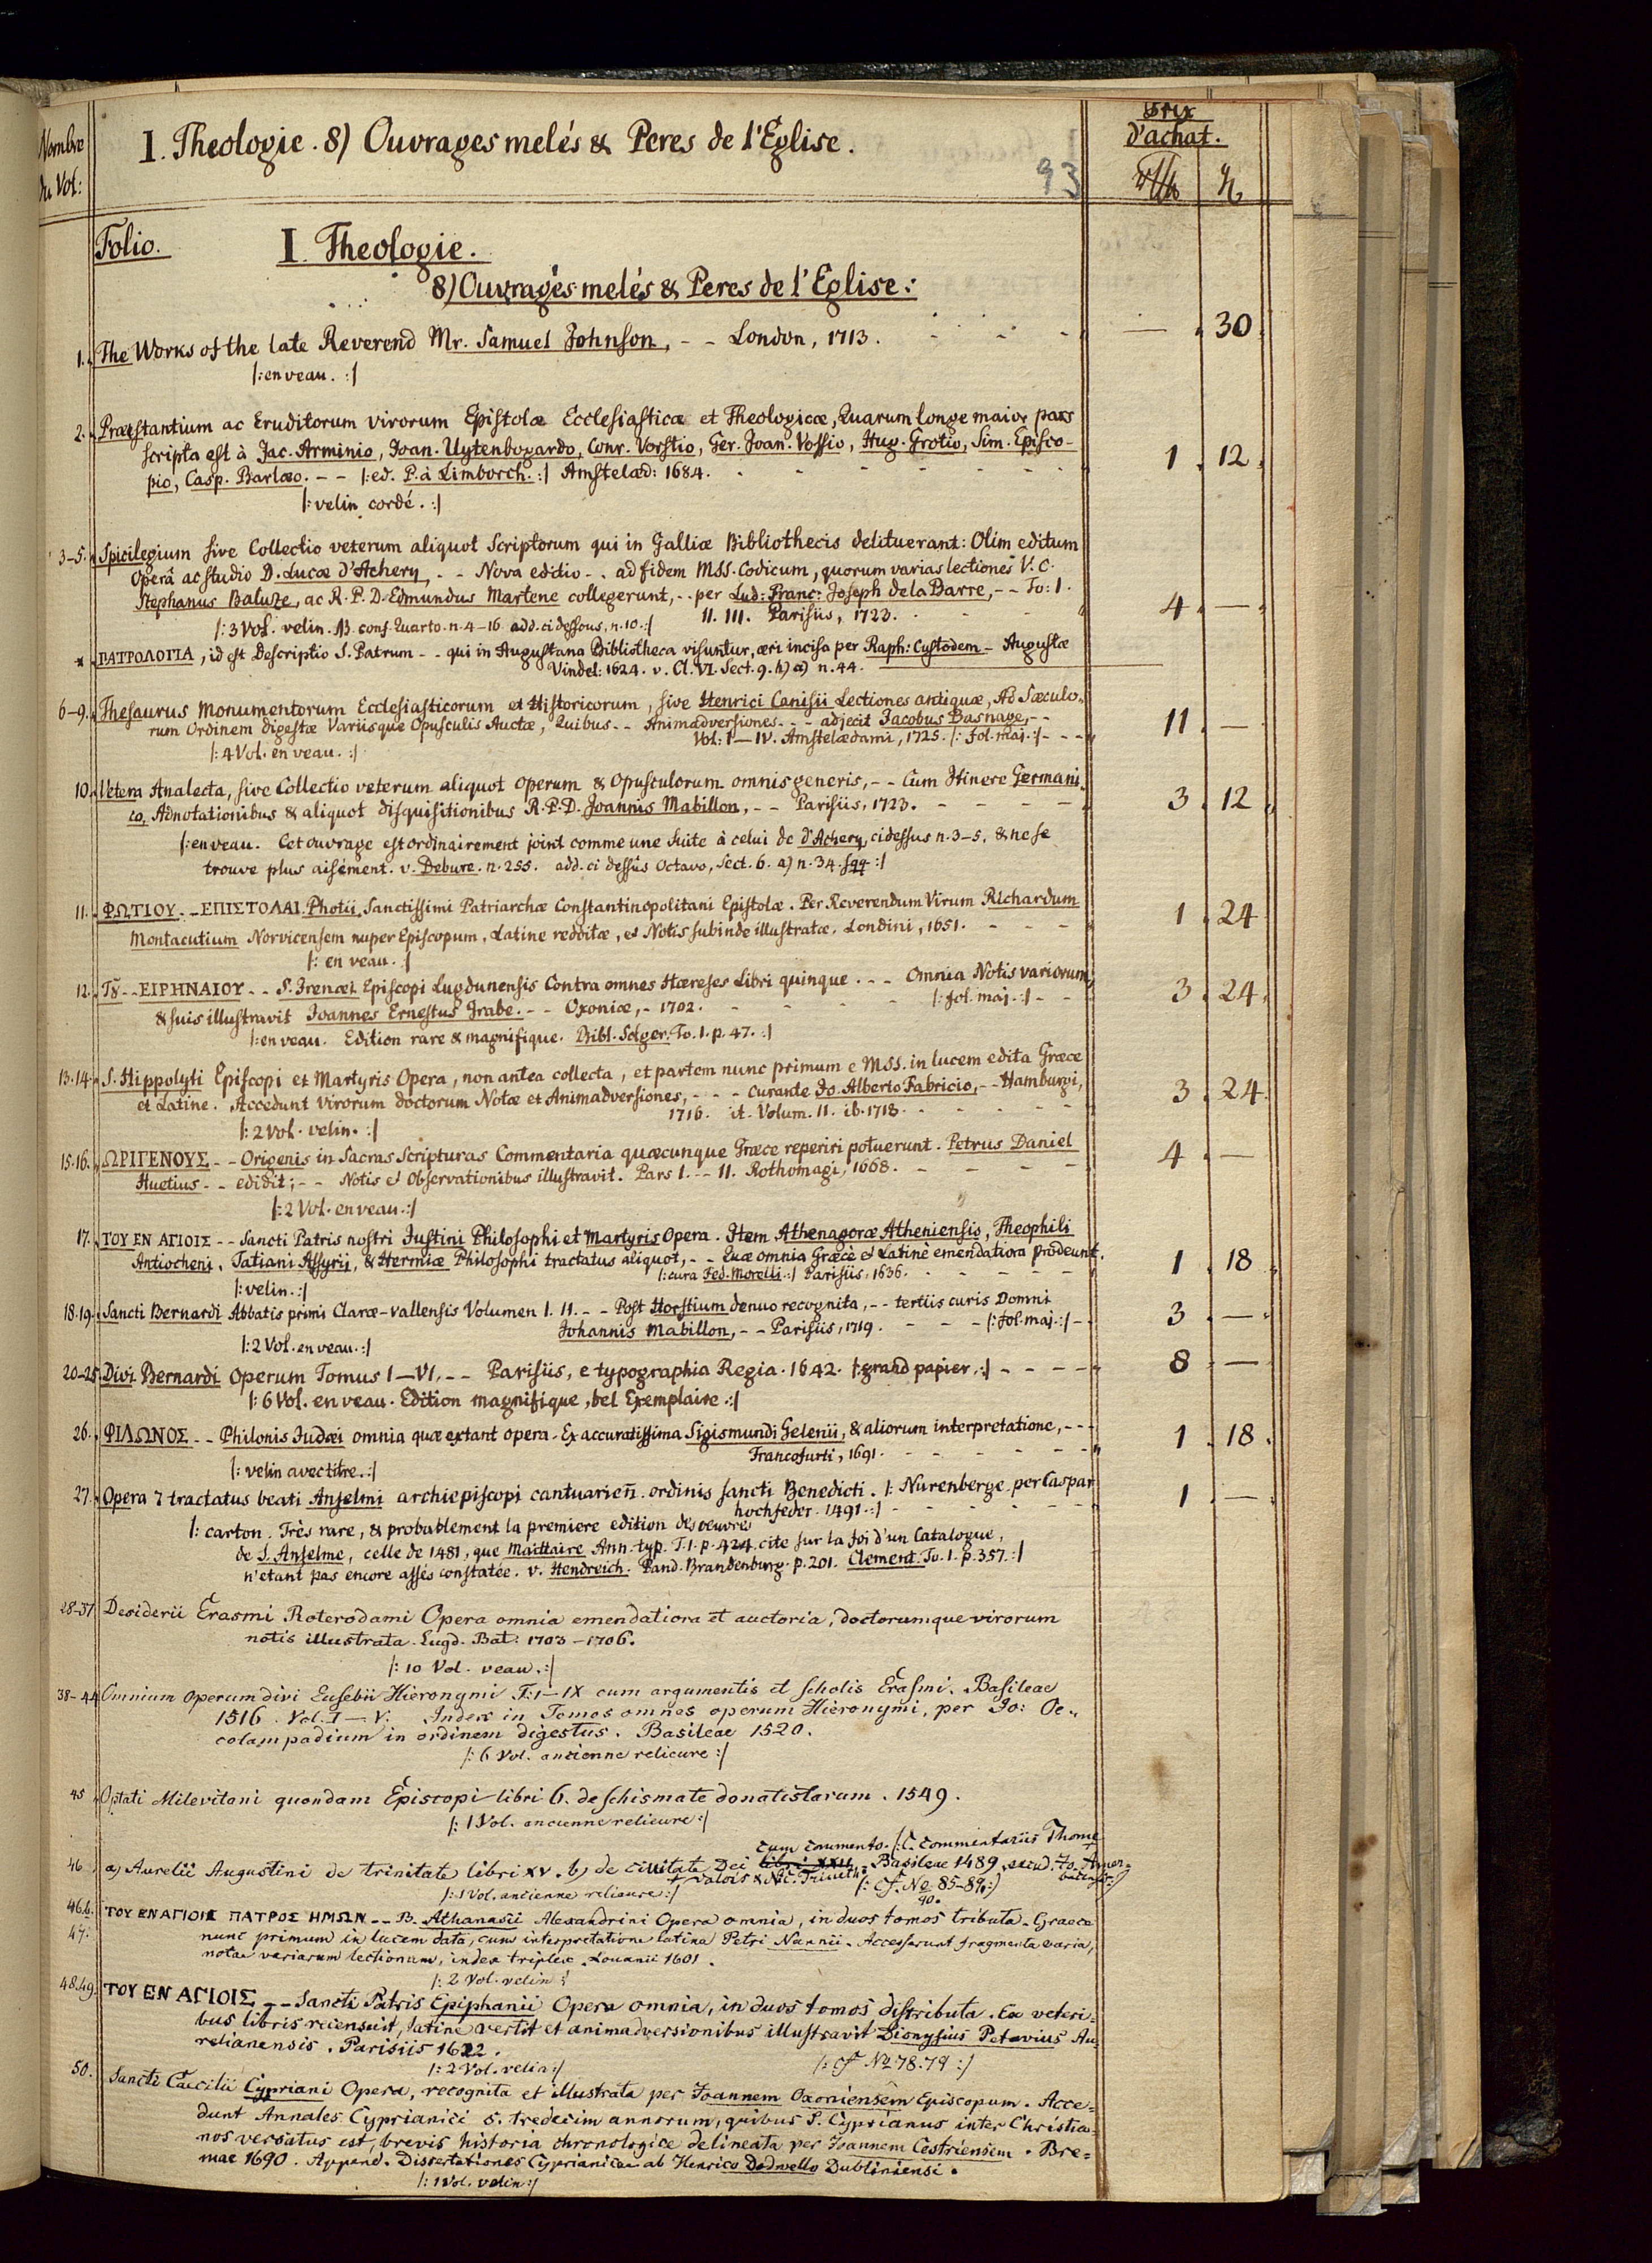 Nombre du Vol:
I. Theologie. 8) Ouvrages melés & Peres de l'Eglise.
93
Prix d'achat.
Folio. I. Theologie.
8) Ouvrages melés & Peres de l'Eglise:
1. The Works of the late Reverend Mr. Samuel Johnson, - - London, 1713. — 30
|: en veau. :|
2. Præstantium ac Eruditorum virorum Epistolæ Ecclesiasticæ et Theologicæ, Quarum longe maior pars
scripta est à Jac. Arminio, Joan. Uytenbogardo, Conr. Vorstio, Ger. Joan. Vossio, Hug. Grotio, Sim. Episco-
pio, Casp. Barlæo. - - |: ed. P. à Limborch. :| Amstelæd: 1684. 1. 12.
|: velin cordé. :|
3-5. Spicilegium sive Collectio veterum aliquot Scriptorum qui in Galliæ Bibliothecis delituerant: Olim editum
Operâ ac studio D. Lucæ d'Achery, - - Nova editio - . ad fidem MSS. Codicum, quorum varias lectiones V. C.
Stephanus Baluze, ac R. P. D. Edmundus Martene collegerunt, - . per Lud: Franc: Joseph de la Barre, - - To: I.
II. III. Parisiis, 1723. 4. —
|: 3 Vol. velin. NB. conf. Quarto. n. 4-16 add. ci dessous, n. 10. :|
* ΠΑΤΡΟΛΟΓΙΑ, id est Descriptio S. Patrum - - qui in Augustana Bibliotheca visuntur, æri incisa per Raph: Custodem - Augustæ
Vindel: 1624. v. Cl. VI. Sect. 9. h) a) n. 44.
6-9. Thesaurus Monumentorum Ecclesiasticorum et Historicorum, sive Henrici Canisii Lectiones antiquæ, Ad Sæculo-
rum Ordinem digestæ Variisque Opusculis Auctæ, Quibus - - Animadversiones - - - adjecit Jacobus Basnage, - -
Vol: I—IV. Amstelædami, 1725. |: fol. maj. :| - - - 11. —
|: 4 Vol. en veau. :|
10. Vetera Analecta, sive Collectio veterum aliquot Operum & Opusculorum omnis generis, - - Cum Itinere Germani-
co, Adnotationibus & aliquot disquisitionibus R. P. D. Joannis Mabillon, - - Parisiis, 1723. 3. 12.
|: en veau. Cet ouvrage est ordinairement joint comme une Suite à celui de d'Achery, ci dessus n. 3-5, & ne se
trouve plus aisément. v. Debure. n. 255. add. ci dessus Octavo, Sect. 6. a) n. 34. sqq :|
11. ΦΩΤΙΟΥ - - ΕΠΙΣΤΟΛΑΙ. Photii, Sanctissimi Patriarchæ Constantinopolitani Epistolæ. Per Reverendum Virum RIchardum
Montacutium Norvicensem nuper Episcopum, Latine redditæ, et Notis subinde illustratæ. Londini, 1651. 1. 24
|: en veau. :|
12. Τȣ - - ΕΙΡΗΝΑΙΟΥ - - S. Irenæi Episcopi Lugdunensis Contra omnes Hæreses Libri quinque - - - Omnia Notis variorum,
& suis illustravit Joannes Ernestus Grabe. - - Oxoniæ, - 1702. |: fol. maj. :| 3. 24.
|: en veau. Edition rare & magnifique. Bibl. Solger. To. I. p. 47. :|
13.14. S. Hippolyti Episcopi et Martyris Opera, non antea collecta, et partem nunc primum e MSS. in lucem edita Græce
et Latine. Accedunt Virorum doctorum Notæ et Animadversiones, - - - curante Jo. Alberto Fabricio, - - Hamburgi,
1716. it. Volum. II. ib. 1718. 3. 24.
|: 2 Vol. velin. :|
15.16. ΩΡΙΓΕΝΟΥΣ - - Origenis in Sacras Scripturas Commentaria quæcunque Græce reperiri potuerunt. Petrus Daniel
Huetius - - edidit; - - Notis et Observationibus illustravit. Pars I. - - II. Rothomagi, 1668. 4. —
|: 2 Vol. en veau. :|
17. ΤΟΥ ΕΝ ΑΓΙΟΙΣ - - Sancti Patris nostri Justini Philosophi et Martyris Opera. Item Athenagoræ Atheniensis, Theophili
Antiocheni, Tatiani Assyrii, & Hermiæ Philosophi tractatus aliquot, - - Quæ omnia Græcè et Latinè emendatiora prodeunt.
|: cura Fed. Morelli. :| Parisiis, 1636. 1. 18.
|: velin. :|
18.19. Sancti Bernardi Abbatis primi Claræ-vallensis Volumen I. II. - - Post Horstium denuo recognita, - - tertiis curis Domni
Johannis Mabillon, - - Parisiis, 1719. |: fol. maj. :| 3. —
|: 2 Vol. en veau. :|
20-25. Divi Bernardi Operum Tomus I—VI. - - Parisiis, e typographia Regia. 1642. |: grand papier. :| 8 —
|: 6 Vol. en veau. Edition magnifique, bel Exemplaire. :|
26. ΦΙΛΩΝΟΣ - - Philonis Judæi omnia quæ extant opera. Ex accuratissima Sigismundi Gelenii, & aliorum interpretatione, - - -
Francofurti, 1691. 1. 18.
|: velin avec titre. :|
27. Opera 7 tractatus beati Anselmi archiepiscopi cantuarien̄. ordinis sancti Benedicti. |: Nurenberge per Caspar
hochfeder. 1491. :| 1. —
|: carton. Très rare, & probablement la premiere edition des oeuvres
de S. Anselme, celle de 1481, que Maittaire Ann. typ. T. I. p. 424. cite sur la foi d'un Catalogue,
n'etant pas encore assés constatée. v. Hendreich. Pand. Brandenburg. p. 201. Clement. To. I. p. 357. :|
28-37. Desiderii Erasmi Roterodami Opera omnia emendatiora et auctoria, doctorumque virorum
notis illustrata. Lugd. Bat: 1703-1706.
|: 10 Vol. veau. :|
38-44. Omnium operum divi Eusebii Hieronymi T: I—IX cum argumentis et scholis Erasmi. Basileae
1516. Vol. I—V. Index in Tomos omnes operum Hieronymi, per Jo: Oe-
colampadium in ordinem digestus. Basileae 1520.
|: 6 Vol. ancienne relieure :|
45. Optati Milevitani quondam Episcopi libri 6. de schismate donatistarum. 1549.
|: 1 Vol. ancienne relieure :|
cum comento. |: C. commentariis Thome
46. a) Aurelii Augustini de trinitate libri XV. b) de civitate Dei libri XXII. Basileae 1489. excud. Jo. Amer-
bach
Valois & Nic. Triveth
|: cf. No 85-89. :|
90.
|: 1 Vol. ancienne relieure :|
46.b. 47. ΤΟΥ ΕΝ ΑΓΙΟΙΣ ΠΑΤΡΟΣ ΗΜΩΝ - - B. Athanasii Alexandrini Opera omnia, in duos tomos tributa. Graece
nunc primum in lucem data, cum interpretatione latina Petri Nannii. Accesserunt fragmenta varia,
notae variarum lectionum, index triplex. Louanii 1601.
|: 2 Vol. velin :|
48.49. ΤΟΥ ΕΝ ΑΓΙΟΙΣ - - Sancti Patris Epiphanii Opera omnia, in duos tomos distributa. Ex veteri-
bus libris recensuit, latine vertit et animadversionibus illustravit Dionysius Petavius Au-
relianensis. Parisiis 1622.
|: 2 Vol. velin :| |: cf No 78.79 :|
50. Sancti Caecilii Cypriani Opera, recognita et illustrata per Joannem Oxoniensem Episcopum. Acce-
dunt Annales Cyprianici s. tredecim annorum, quibus S. Cyprianus inter Christia-
nos versatus est, brevis historia chronologice delineata per Joannem Cestriensem. Bre-
mae 1690. Append. Dissertationes Cyprianicae ab Henrico Dodwello Dubliniensi.
|: 1 Vol. velin :|